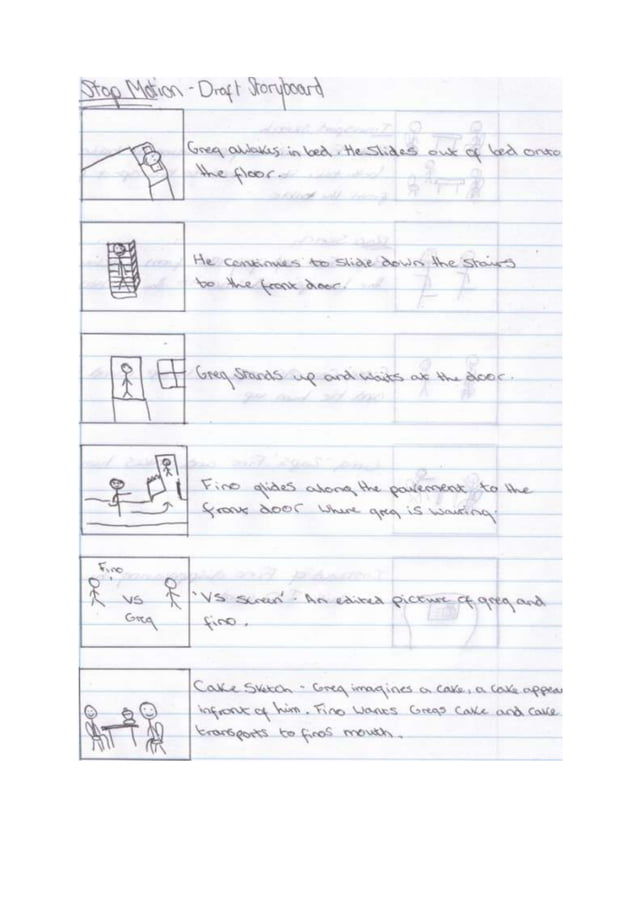 Stop Motion - Draft Storyboard
Greg awakes in bed. He slides out of bed onto
the floor.
He continues to slide down the stairs
to the front door.
Greg stands up and waits at the door.
Fino glides along the pavement to the
front door where greg is waiting.
Fino
VS
Greg
'VS screen' - An edited picture of greg and
fino.
Cake Sketch - Greg imagines a cake, a cake appea
infront of him. Fino wants Gregs cake and cake
transports to finos mouth.